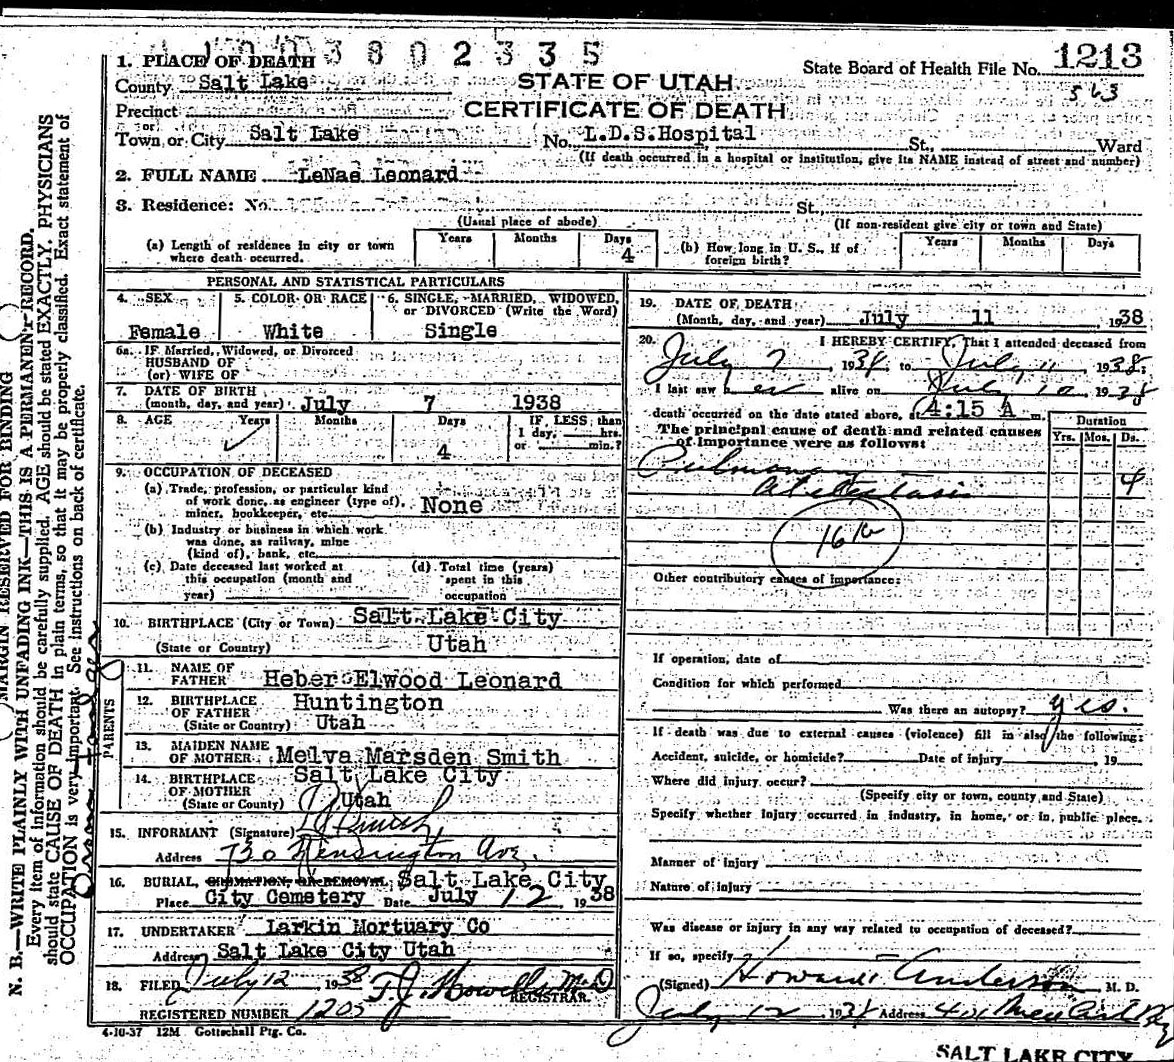 1003802335
1. PLACE OF DEATH
County Salt Lake
STATE OF UTAH
State Board of Health File No. 1213
563
Precinct
CERTIFICATE OF DEATH
or
Town or City Salt Lake No. L.D.S.Hospital St., Ward
(If death occurred in a hospital or institution, give its NAME instead of street and number)
2. FULL NAME LeNae Leonard
3. Residence: No. St.,
(Usual place of abode) (If non-resident give city or town and State)
(a) Length of residence in city or town where death occurred. Years Months Days 4
(b) How long in U. S., if of foreign birth? Years Months Days
PERSONAL AND STATISTICAL PARTICULARS
4. SEX 5. COLOR OR RACE 6. SINGLE, MARRIED, WIDOWED, or DIVORCED (Write the Word)
Female White Single
6a. IF Married, Widowed, or Divorced
HUSBAND OF
(or) WIFE OF
7. DATE OF BIRTH
(month, day, and year) July 7 1938
8. AGE Years Months Days IF LESS than
1 day, hrs.
4 or min.?
9. OCCUPATION OF DECEASED
(a) Trade, profession, or particular kind
of work done, as engineer (type of),
miner, bookkeeper, etc. None
(b) Industry or business in which work
was done, as railway, mine
(kind of), bank, etc.
(c) Date deceased last worked at
this occupation (month and
year)
(d) Total time (years)
spent in this
occupation
10. BIRTHPLACE (City or Town) Salt Lake City
(State or Country) Utah
PARENTS
11. NAME OF
FATHER Heber Elwood Leonard
12. BIRTHPLACE Huntington
OF FATHER
(State or Country) Utah
13. MAIDEN NAME
OF MOTHER Melva Marsden Smith
14. BIRTHPLACE Salt Lake City
OF MOTHER
(State or County) Utah
15. INFORMANT (Signature)
Address 730 Kensington Ave.
16. BURIAL, CREMATION, OR REMOVAL Salt Lake City
Place City Cemetery Date July 12, 1938
17. UNDERTAKER Larkin Mortuary Co
Address Salt Lake City Utah
18. FILED July 12 1938 T.J. Howells M.D.
REGISTRAR.
REGISTERED NUMBER 1205
4-10-37 12M Gottschall Ptg. Co.
19. DATE OF DEATH
(Month, day, and year) July 11 1938
20. I HEREBY CERTIFY, That I attended deceased from
July 7 1938, to July 11, 1938;
I last saw her alive on July 10 1938
death occurred on the date stated above, at 4:15 A m.
The principal cause of death and related causes
of importance were as follows: Duration
Yrs. Mos. Ds.
Pulmonary
atelectasis 4
Other contributory causes of importance:
If operation, date of
Condition for which performed
Was there an autopsy? Yes.
If death was due to external causes (violence) fill in also the following:
Accident, suicide, or homicide? Date of injury , 19
Where did injury occur?
(Specify city or town, county and State)
Specify whether injury occurred in industry, in home, or in public place.
Manner of injury
Nature of injury
Was disease or injury in any way related to occupation of deceased?
If so, specify
(Signed) Howard Anderson, M. D.
July 12 1938 Address
SALT LAKE CITY
MARGIN RESERVED FOR BINDING
N. B.—WRITE PLAINLY WITH UNFADING INK—THIS IS A PERMANENT RECORD.
Every item of information should be carefully supplied. AGE should be stated EXACTLY. PHYSICIANS
should state CAUSE OF DEATH in plain terms, so that it may be properly classified. Exact statement of
OCCUPATION is very important. See instructions on back of certificate.